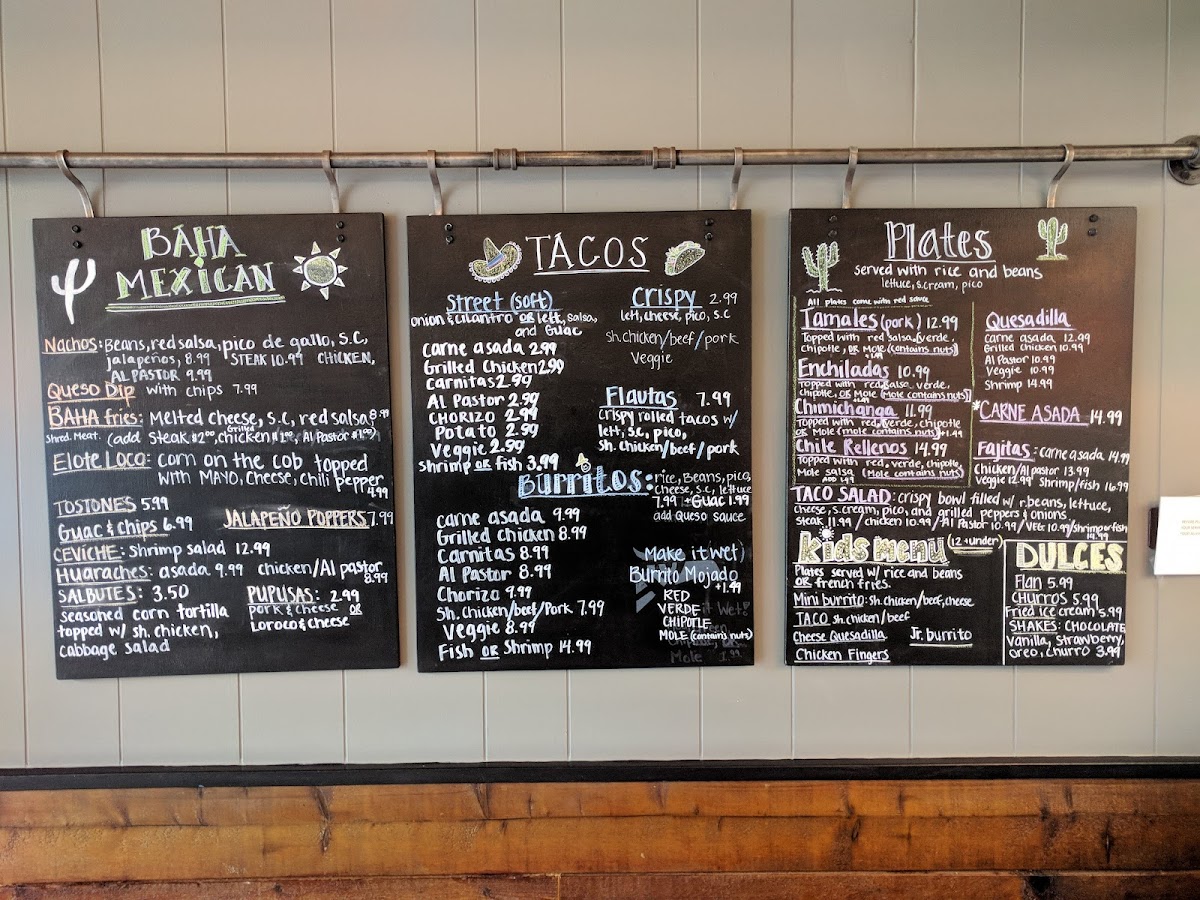 BAHA
MEXICAN
Nachos: Beans, red salsa, pico de gallo, S.C,
jalapeños, 8.99 STEAK 10.99 CHICKEN,
AL PASTOR 9.99
Queso Dip with chips 7.99
BAHA fries: Melted cheese, s.c, red salsa, 8.99
Shred. Meat. (add steak $2.00, Grilled chicken $1.00, Al Pastor $1.99)
Elote Loco: corn on the cob topped
with MAYO, cheese, chili pepper
4.99
TOSTONES 5.99
Guac & chips 6.99
JALAPEÑO POPPERS 7.99
CEVICHE: Shrimp salad 12.99
Huaraches: asada 9.99 chicken/Al pastor
8.99
SALBUTES: 3.50
seasoned corn tortilla
topped w/ sh. chicken,
cabbage salad
PUPUSAS: 2.99
pork & cheese OR
Loroco & cheese
TACOS
Street (soft)
onion & cilantro OR lett, salsa,
and Guac
carne asada 2.99
Grilled Chicken 2.90
carnitas 2.99
Al Pastor 2.99
CHORIZO 2.99
Potato 2.99
Veggie 2.59
shrimp OR fish 3.99
Crispy 2.99
lett, cheese, pico, s.c
sh.chicken/beef/pork
Veggie
Flautas 7.99
Crispy rolled tacos w/
lett, s.c, pico,
sh. chicken/beef/pork
Burritos: rice, Beans, pico,
cheese, s.c, lettuce
7.99 + Guac 1.99
add Queso sauce
carne asada 9.99
Grilled chicken 8.99
Carnitas 8.99
Al Pastor 8.99
Chorizo 9.99
Sh. Chicken/beef/Pork 7.99
Veggie 8.99
Fish OR Shrimp 14.99
(Make it wet)
Burrito Mojado
+1.99
RED
VERDE
CHIPOTLE
MOLE (contains nuts)
Mole 1.99
Plates
served with rice and beans
lettuce, s.cream, pico
All plates come with red sauce
Tamales (pork) 12.99
Topped with red salsa, verde,
Chipotle, OR Mole (contains nuts)
+1.99
Enchiladas 10.99
Topped with red salsa, verde,
chipotle, OR Mole (Mole contains nuts)
Chimichanga 11.99
Topped with red, verde, chipotle
OR Mole (mole contains nuts) +1.99
Chile Rellenos 14.99
Topped with red, verde, chipotle,
Mole salsa (Mole contains nuts)
ADD 1.99
Quesadilla
carne asada 12.99
Grilled chicken 10.99
Al Pastor 10.99
Veggie 10.99
Shrimp 14.99
*CARNE ASADA 14.99
Fajitas: carne asada 14.99
Chicken/Al pastor 13.99
Veggie 12.99 Shrimp/fish 16.99
TACO SALAD: crispy bowl filled w/ r.beans, lettuce,
cheese, s.cream, pico, and grilled peppers & onions
steak 11.99 / chicken 10.99 / Al Pastor 10.99 / VEG 10.99 / shrimp or fish
14.99
kids menu (12 + under)
Plates served w/ rice and beans
OR french fries.
Mini burrito: sh. chicken/beef, cheese
TACO sh. chicken/beef
Cheese Quesadilla
Jr. burrito
Chicken Fingers
DULCES
Flan 5.99
Churros 5.99
Fried ice cream 5.99
SHAKES: CHOCOLATE
Vanilla, strawberry,
oreo, churro 3.99